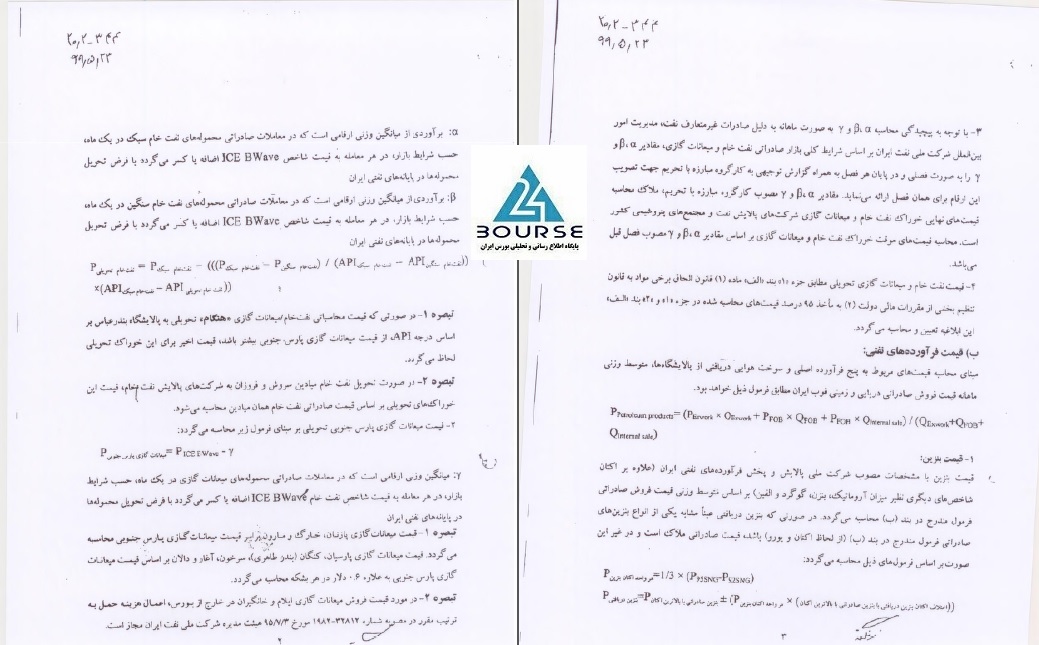 ۲۰,۲ - ۳۴۴
۹۹,۵,۲۳
α: برآوردی از میانگین وزنی ارقامی است که در معاملات صادراتی محموله‌های نفت خام سبک در یک ماه،
حسب شرایط بازار، در هر معامله به قیمت شاخص ICE BWave اضافه یا کسر می‌گردد با فرض تحویل
محموله‌ها در پایانه‌های نفتی ایران
β: برآوردی از میانگین وزنی ارقامی است که در معاملات صادراتی محموله‌های نفت خام سنگین در یک ماه،
حسب شرایط بازار، در هر معامله به قیمت شاخص ICE BWave اضافه یا کسر می‌گردد با فرض تحویل
محموله‌ها در پایانه‌های نفتی ایران
P نفت‌خام تحویلی = P نفت‌خام سبک – (((P نفت‌خام سبک – P نفت‌خام سنگین) / (API نفت خام سبک – API نفت‌خام سنگین))
×(API نفت‌خام سبک – API نفت خام تحویلی))
تبصره ۱- در صورتی که قیمت محاسباتی نفت‌خام/میعانات گازی «هنگام» تحویلی به پالایشگاه بندرعباس بر
اساس درجه API، از قیمت میعانات گازی پارس جنوبی بیشتر باشد، قیمت اخیر برای این خوراک تحویلی
لحاظ می‌گردد.
تبصره ۲- در صورت تحویل نفت خام میادین سروش و فروزان به شرکت‌های پالایش نفت خام، قیمت این
خوراک‌های تحویلی بر اساس قیمت صادراتی نفت خام همان میادین محاسبه می‌شود.
۲- قیمت میعانات گازی پارس جنوبی تحویلی بر مبنای فرمول زیر محاسبه می‌گردد:
P میعانات گازی پارس جنوبی = P ICE BWave - γ
γ: میانگین وزنی ارقامی است که در معاملات صادراتی محموله‌های میعانات گازی در یک ماه، حسب شرایط
بازار، در هر معامله به قیمت شاخص نفت خام ICE BWave اضافه یا کسر می‌گردد با فرض تحویل محموله‌ها
در پایانه‌های نفتی ایران
تبصره ۱- قیمت میعانات گازی پازنان، خارگ و مارون برابر قیمت میعانات گازی پارس جنوبی محاسبه
می‌گردد. قیمت میعانات گازی پارسیان، کنگان (بندر طاهری)، سرخون، آغار و دالان بر اساس قیمت میعانات
گازی پارس جنوبی به علاوه ۰.۶ دلار در هر بشکه محاسبه می‌گردد.
تبصره ۲- در مورد قیمت فروش میعانات گازی ایلام و خانگیران در خارج از بورس، اعمال هزینه حمل به
ترتیب مقرر در مصوبه شماره ۳۲۸۱۲-۱۹۸۲ مورخ ۹۵/۷/۳ هیئت مدیره شرکت ملی نفت ایران مجاز است.
۲
24
BOURSE
پایگاه اطلاع رسانی و تحلیلی بورس ایران
۲۰,۲ - ۳۴۴
۹۹,۵,۲۳
۳- با توجه به پیچیدگی محاسبه α، β و γ به صورت ماهانه به دلیل صادرات غیرمتعارف نفت، مدیریت امور
بین‌الملل شرکت ملی نفت ایران بر اساس شرایط کلی بازار صادراتی نفت خام و میعانات گازی، مقادیر α، β و
γ را به صورت فصلی و در پایان هر فصل به همراه گزارش توجیهی به کارگروه مبارزه با تحریم جهت تصویب
این ارقام برای همان فصل ارائه می‌نماید. مقادیر α، β و γ مصوب کارگروه مبارزه با تحریم، ملاک محاسبه
قیمت‌های نهایی خوراک نفت خام و میعانات گازی شرکت‌های پالایش نفت و مجتمع‌های پتروشیمی کشور
است. محاسبه قیمت‌های موقت خوراک نفت خام و میعانات گازی بر اساس مقادیر α، β و γ مصوب فصل قبل
می‌باشد.
۴- قیمت نفت خام و میعانات گازی تحویلی مطابق جزء «۱» بند «الف» ماده (۱) قانون الحاق برخی مواد به قانون
تنظیم بخشی از مقررات مالی دولت (۲) به مأخذ ۹۵ درصد قیمت‌های محاسبه شده در جزء «۱» و «۲» بند «الف»
این ابلاغیه تعیین و محاسبه می‌گردد.
ب) قیمت فرآورده‌های نفتی:
مبنای محاسبه قیمت‌های مربوط به پنج فرآورده اصلی و سوخت هوایی دریافتی از پالایشگاه‌ها، متوسط وزنی
ماهانه قیمت فروش صادراتی دریایی و زمینی فوب ایران مطابق فرمول ذیل خواهد بود.
P Petroleum products= (P Exwork × Q Exwork + P FOB × Q FOB + P FOH × Q Internal sale) / (Q Exwork+Q FOB+
Q Internal sale)
۱- قیمت بنزین:
قیمت بنزین با مشخصات مصوب شرکت ملی پالایش و پخش فرآورده‌های نفتی ایران (علاوه بر اکتان
شاخص‌های دیگری نظیر میزان آروماتیک، بنزن، گوگرد و الفین) بر اساس متوسط وزنی قیمت فروش صادراتی
فرمول مندرج در بند (ب) محاسبه می‌گردد. در صورتی که بنزین دریافتی عیناً مشابه یکی از انواع بنزین‌های
صادراتی فرمول مندرج در بند (ب) (از لحاظ اکتان و یورو) باشد، قیمت صادراتی ملاک است و در غیر این
صورت بر اساس فرمول‌های ذیل محاسبه می‌گردد:
P هر واحد اکتان بنزین=1/3 × (P P95SNG-P 92SNG)
P بنزین دریافتی=P بنزین صادراتی با بالاترین اکتان ± (P هر واحد اکتان بنزین × (اختلاف اکتان بنزین دریافتی با بنزین صادراتی با بالاترین اکتان))
۳